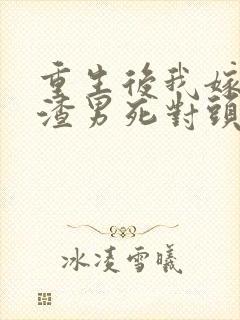 重生後我嫁
渣男死對頭
冰凌雪曦